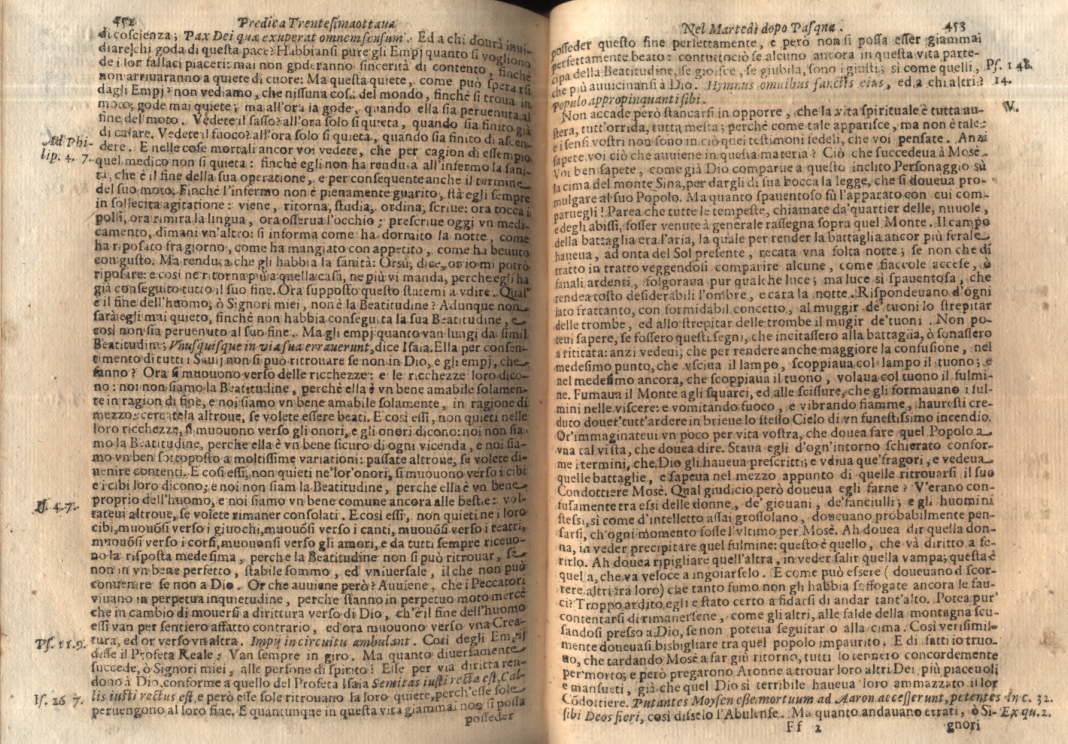 452 Predica Trentesimaottaua
di coscienza; Pax Dei quæ exuperat omnem sensum. Ed a chi dourà inui-
diaresi chi goda di questa pace? Habbiansi pure gli Empj quanto si vogliono
de i lor fallaci piaceri: mai non goderanno sincerità di contento, finchè
non arriuaranno a quiete di cuore: Ma questa quiete, come può sperarsi
dagli Empj? non vediamo, che nissuna cosa del mondo, finchè si troua in
moto, gode mai quiete; ma all'ora la gode, quando ella sia peruenuta al
fine del moto. Vedete il sasso? all'ora solo si quieta, quando sia finito già
di calare. Vedete il fuoco? all'ora solo si quieta, quando sia finito di ascen-
Ad Phi-
lip. 4. 7.
dere. E nelle cose mortali ancor voi vedete, che per cagion di essempio
quel medico non si quieta: finchè egli non ha renduta all'infermo la sani-
tà, che è il fine della sua operatione, e per conseguente anche il termine
del suo moto. Finchè l'infermo non è pienamente guarito, stà egli sempre
in sollecita agitatione: viene, ritorna, studia, ordina, scriue: ora tocca i
polsi, ora rimira la lingua, ora osserua l'occhio; prescriue oggi vn medi-
camento, dimani vn'altro: si informa come ha dormito la notte, come
ha riposato fra giorno, come ha mangiato con appetito, come ha beuuto
con gusto. Ma renduta che gli habbia la sanità: Orsù, dice, or io mi potrò
riposare: e così ne ritorna più a quella casa, ne più vi manda, perche egli ha
già conseguito tutto il suo fine. Ora supposto questo statemi a vdire. Qual'
è il fine dell'huomo, ò Signori miei, non è la Beatitudine? Adunque non
sarà egli mai quieto, finchè non habbia conseguita la sua Beatitudine, e
così non sia peruenuto al suo fine. Ma gli empj quanto van lungi da simil
Beatitudine; Vnusquisque in via sua errauerunt, dice Isaia. Ella per consen-
timento di tutti i Sauij non si può ritrouare se non in Dio, e gli empj, che
fanno? Ora si muouono verso delle ricchezze: e le ricchezze loro dico-
no: noi non siamo la Beatitudine, perchè ella è vn bene amabile solamen-
te in ragion di fine, e noi siamo vn bene amabile solamente, in ragione di
mezzo: cercatela altroue, se volete essere beati. E così essi, non quieti nelle
loro ricchezze, si muouono verso gli onori, e gli onori dicono: noi non sia-
mo la Beatitudine, perche ella è vn bene sicuro di ogni vicenda, e noi sia-
mo vn ben sottoposto a moltissime variationi: passate altroue, se volete di-
uenire contenti. E così essi, non quieti ne'lor'onori, si muouono verso i cibi
e i cibi loro dicono; e noi non siam la Beatitudine, perche ella è vn bene
Is. 47.
proprio dell'huomo, e noi siamo vn bene comune ancora alle bestie: vol-
tateui altroue, se volete rimaner consolati. E così essi, non quieti ne i loro
cibi, muouosi verso i giuochi, muouosi verso i canti, muouosi verso i teatri,
muouosi verso i corsi, muouonsi verso gli amori, e da tuti sempre riceuo-
no la risposta medesima, perche la Beatitudine non si può ritrouar, se
non in vn bene perfetto, stabile sommo, ed vniuersale, il che non può
conuenire se non a Dio. Or che auuiene però? Auuiene, che i Peccatori
viuano in perpetua inquietudine, perche stanno in perpetuo moto mercè
che in cambio di mouersi a dirittura verso di Dio, ch'è il fine dell'huomo
essi van per sentiero affatto contrario, ed ora muouono verso vna Crea-
Ps. 11. 9.
tura, ed or verso vn altra. Impij in circuitu ambulant. Così degli Empij
disse il Profeta Reale: Van sempre in giro. Ma quanto diuersamente
succede, ò Signori miei, alle persone di spirito! Esse per via diritta ren-
dono à Dio, conforme a quello del Profeta Isaia Semitas iusti recta est, Cal-
Is. 26 7.
lis iusti rectus est, e però esse sole ritrouano la loro quiete, perch'esse sole
peruengono al loro fine. E quantunque in questa vita giammai non si possa
posseder
Nel Martedì dopo Pasqua. 453
posseder questo fine perfettamente, e però non si possa esser giammai
perfettamente beato: contuttociò se alcuno ancora in questa vita parte-
cipa della Beatitudine, se gioisce, se giubila, sono i giusti; si come quelli,
che più auuicinansi a Dio. Hymnus omnibus sanctis eius, ed a chi altri?
Ps. 148.
14.
Populo appropinquanti sibi.
V.
Non accade però stancarsi in opporre, che la vita spirituale è tutta au-
stera, tutt'orrida, tutta mesta; perchè come tale apparisce, ma non è tale:
e i sensi vostri non sono in ciò quei testimoni fedeli, che voi pensate. Anzi
sapete voi ciò che auuiene in questa materia? Ciò che succedeua à Mosè.
Voi ben sapete, come già Dio comparue a questo inclito Personaggio sù
la cima del monte Sina, per dargli di sua bocca la legge, che si doueua pro-
mulgare al suo Popolo. Ma quanto spauentoso fù l'apparato con cui com-
paruegli! Parea che tutte le tempeste, chiamate da'quartier delle, nuuole,
e degli abissi, fosser venute à generale rassegna sopra quel Monte. Il campo
della battaglia era l'aria, la quale per render la battaglia ancor più ferale
haueua, ad onta del Sol presente, recata vna folta notte; se non che di
tratto in tratto veggendosi comparire alcune, come fiaccole accese, ò
fanali ardenti, sfolgoraua pur qualche luce; ma luce sì spauentosa, che
rendea tosto desiderabili l'ombre, e cara la notte. Rispondeuano d'ogni
lato frattanto, con formidabil concetto, al muggir de'tuoni lo strepitar
delle trombe, ed allo strepitar delle trombe il mugir de'tuoni. Non po-
teui sapere, se fossero questi segni, che incitassero alla battaglia, ò sonassero
a ritirata: anzi vedeui; che per rendere anche maggiore la confusione, nel
medesimo punto, che vsciua il lampo, scoppiaua col lampo il tuono; e
nel medesimo ancora, che scoppiaua il tuono, volaua col tuono il fulmi-
ne. Fumaua il Monte agli squarci, ed alle scissure, che gli formauano i ful-
mini nelle viscere: e vomitando fuoco, e vibrando fiamme, hauresti cre-
duto douer'tutt'ardere in brieue lo stesso Cielo di vn funestissimo incendio.
Or'immaginateui vn poco per vita vostra, che douea fare quel Popolo a
vna tal vista, che douea dire. Staua egli d'ogn'intorno schierato confor-
me i termini, che Dio gli haueua prescritti: e vdiua que'fragori, e vedeua
quelle battaglie, e sapeua nel mezzo appunto di quelle ritrouarsi il suo
Condottiere Mosè. Qual giudicio però doueua egli farne? V'erano con-
fusamente tra essi delle donne, de' giouani, de'fanciulli; e gli huomini
stessi, sì come d'intelletto assai grossolano, doueuano probabilmente pen-
sarsi, ch'ogni momento fosse l'vltimo per Mosè. Ah douea dir quella don-
na, in veder precipitare quel fulmine: questo è quello, che và diritto a fe-
rirlo. Ah douea ripigliare quell'altra, in veder salir quella vampa; questa è
quella, che va veloce a ingoiarselo. E come può essere (doueuano discor-
rere altri tra loro) che tanto fumo non gli habbia soffogate ancora le fau-
ci? Troppo ardito egli è stato certo a fidarsi di andar tant'alto. Potea pur'
contentarsi di rimanersene, come gli altri, alle falde della montagna scu-
sandosi presso a Dio, se non poteua seguitar o alla cima. Così verisimil-
mente doueuasi bisbigliare tra quel popolo impaurito. E di fatti io truo-
uo, che tardando Mosè a far giù ritorno, tutti lo tennero concordemente
per morto; e però pregarono Aronne a trouar loro altri Dei più piaceuoli
e mansueti, già che quel Dio sì terribile haueua loro ammazzato il lor
Códottiere. Putantes Moysen esse mortuum ad Aaron accesserunt, petentes
In c. 32.
sibi Deos fieri, così disselo l'Abulense. Ma quanto andauano errati, ò Si-
Ex qu. 2.
Ff 2 gnori